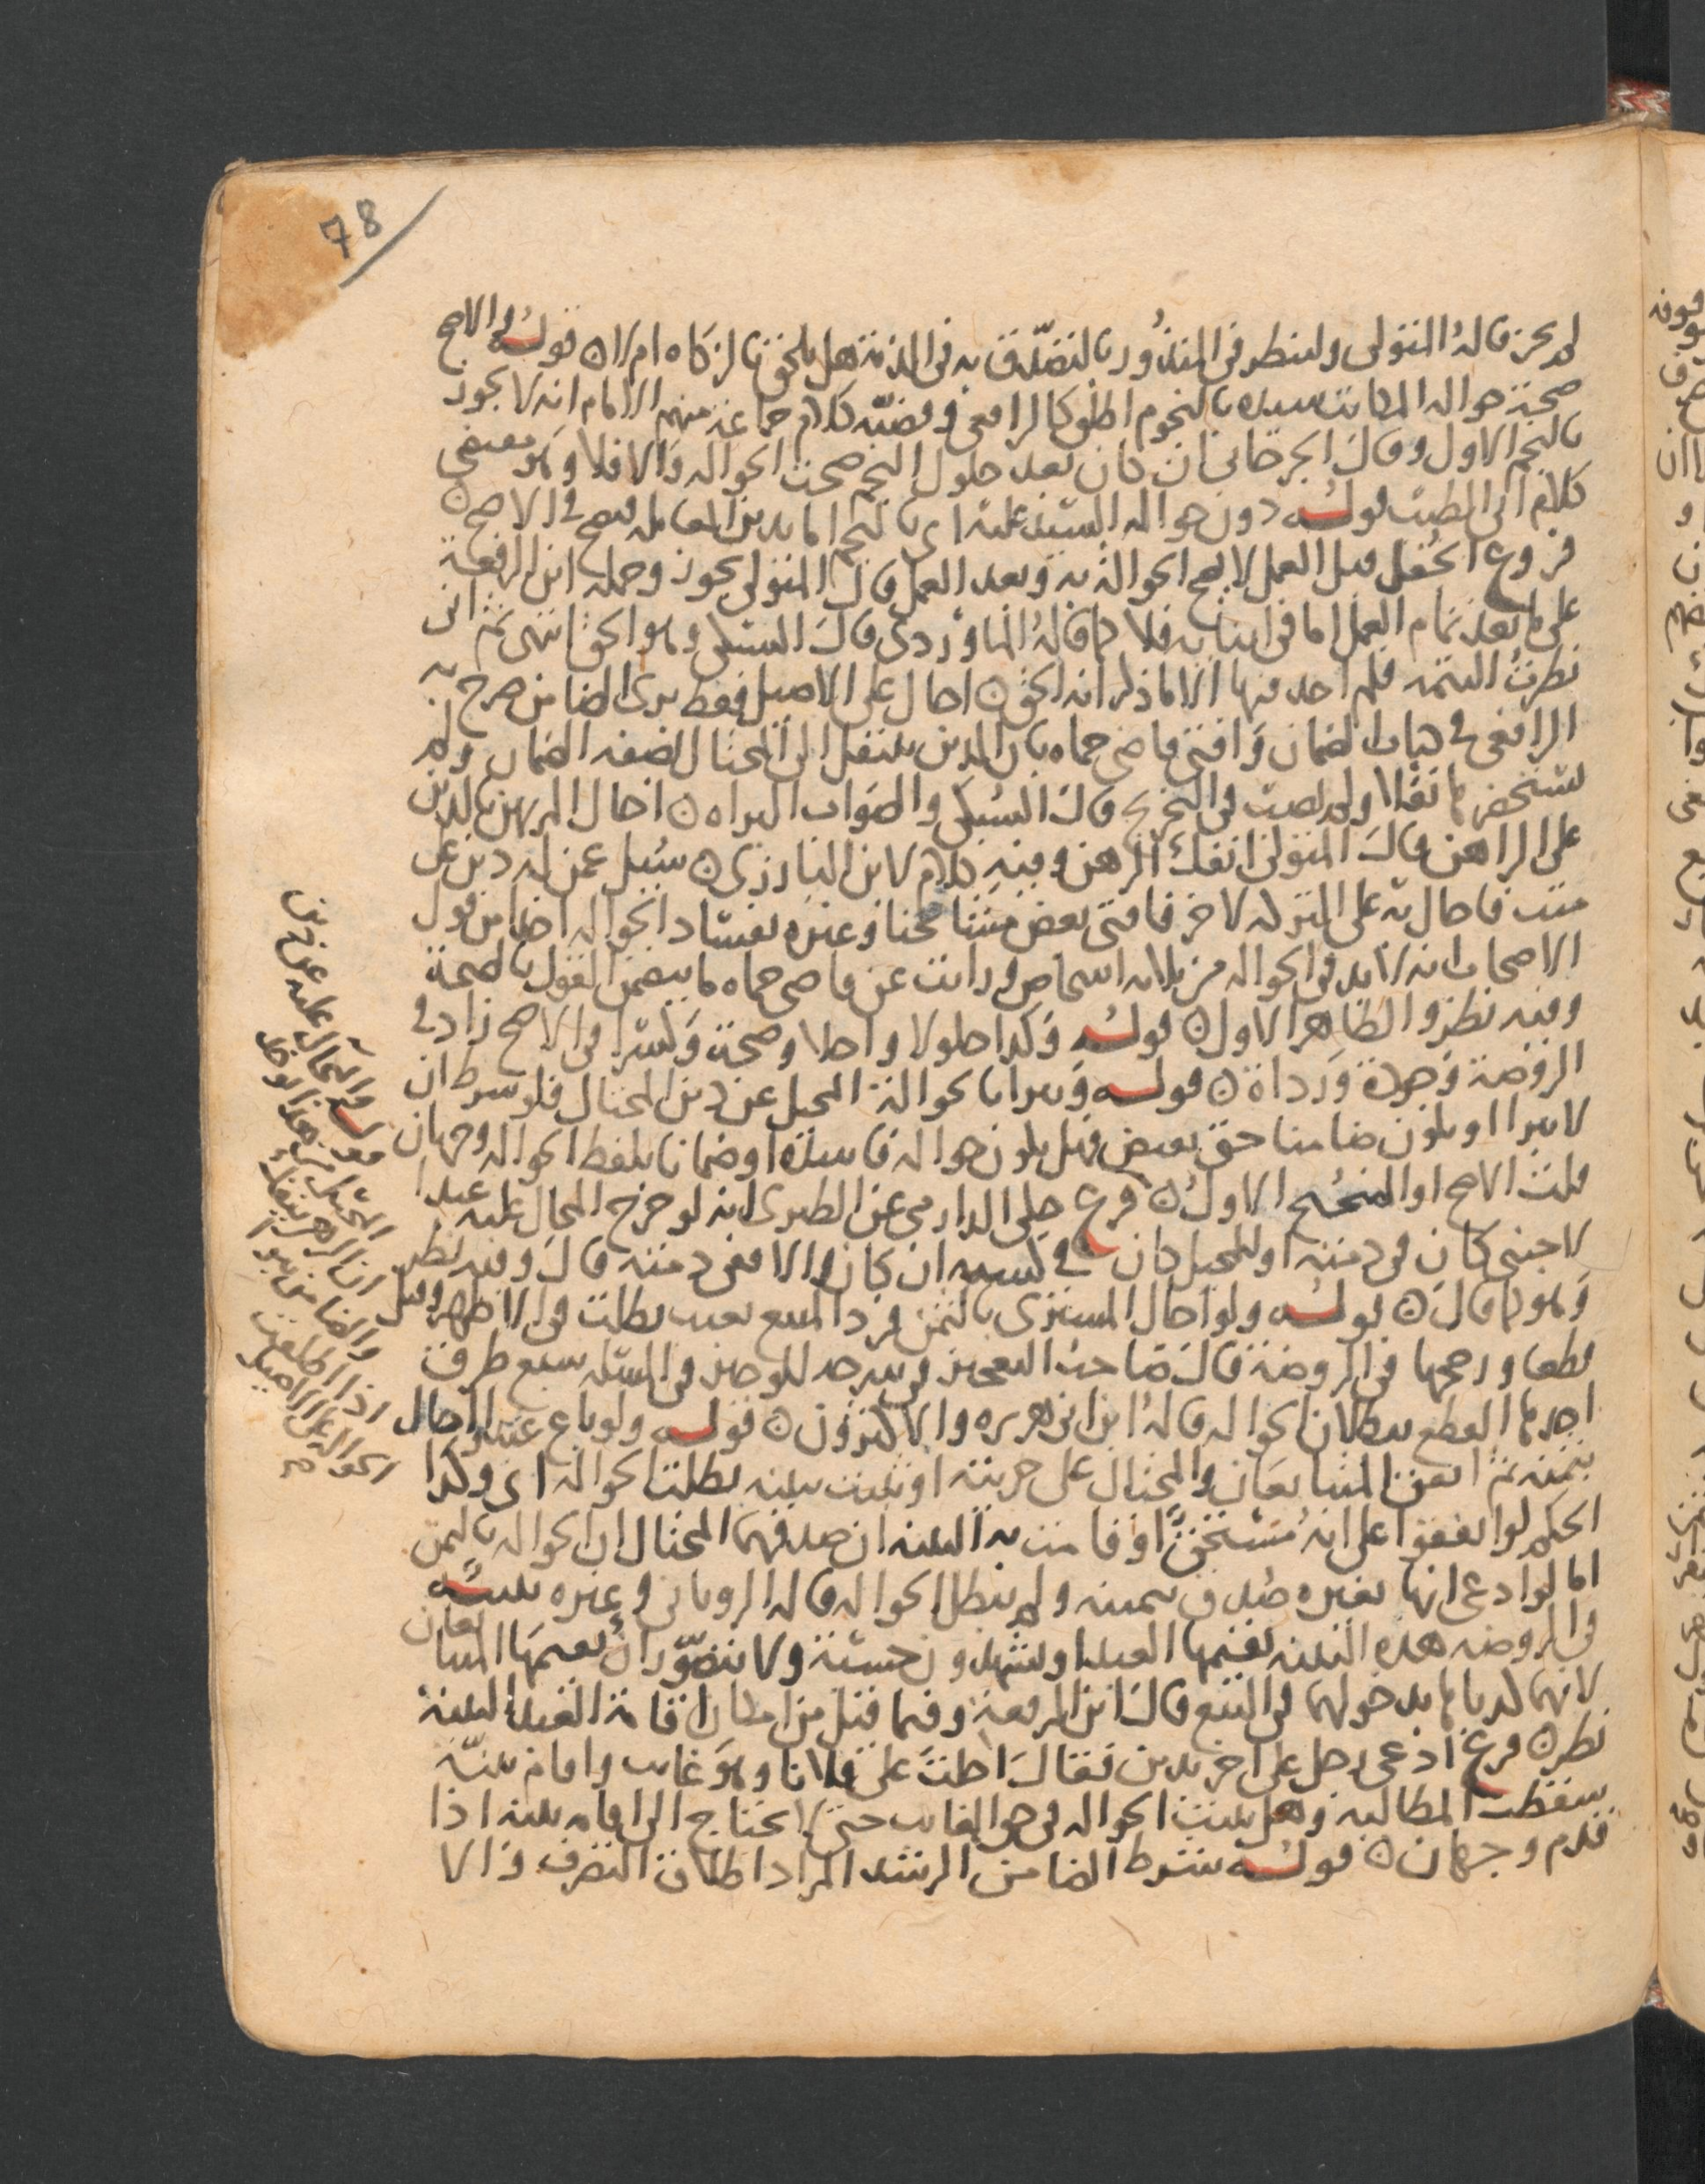 78
لم يجز قاله المتولى ولينظر فى المنذور بالتصدق به فى الذمة هل يلحق بالزكاه ام لا ن قوله فى الاصح
صحة حواله المكاتب سيده بالنجوم اطلق كالرافعى وقضيته كلام جماعة منهم الامام انه لا يجوز
بالنجم الاول وقال الجرجانى ان كان بعد حلول النجم صحت الحواله والا فلا وهو مقتضى
كلام ابى الطيب قوله دون حواله السيد عليه اى بالنجم اما بدين المعامله فيصح فى الاصح ن
فروع الجعل قبل العمل لا يصح الحوالة به وبعد العمل قال المتولى يجوز وحمله ابن الرفعة
على ما بعد تمام العمل اما فى اثنايه فلا كما قاله الماوردى قال السبكى وهو الحق انتهى ثم انى
نظرت التتمه فلم اجد فيها الا ما ذكر انه الحق ن احال على الاصيل فقط برى الضامن صرح به
الرافعى فى باب الضمان وافتى قاضى حماه بان الدين ينتقل الى المحتال بصفه الضمان ولم
يستحضر نقلا ولم يصب فى التخريج قال السبكى والصواب البراه ن احال المرتهن بالدين
على الراهن قال المتولى انفك الرهن وفيه كلام لابن البارزى ن سئل عمن له دين على
ميت فاحال به على التركه لاخر فافتى بعض مشايخنا وغيره بفساد الحواله اخذا من قول
الاصحاب انه لا بد فى الحواله من ثلاثه اشخاص ورايت عن قاضى حماه ما يتضمن القول بالصحة
وفيه نظر والظاهر الاول ن قوله وكذا حلولا واجلا وصحة وكسرا فى الاصح زاد فى
الروضة وجودة ورداة ن قوله ويبرا بالحوالة المحيل عن دين المحتال فلو شرط ان
لا يبرا او يكون ضامنا حق بعيض فهل يكون حواله فاسدة او ضمانا بلفظ الحواله وجهان
قلت الاصح او الصحيح الاول ن فرع حكى الدارمى عن الطبرى انه لو خرج المحال عليه عبدا
لاجنبى كان فى ذمته او للمحيل كان فى كسبه ان كان والا ففى ذمته قال وفيه نظر
وهو كما قال ن قوله ولو احال المشترى بالثمن فرد المبيع بعيب بطلت فى الاظهر وقيل
قطعا ورجحها فى الروضة قال صاحب التعجيز فى شرحه للوجيز فى المسئله سبع طرق
احدها القطع ببطلان الحواله قاله ابن ابى هريره والاكثرون ن قوله ولو باع عبدا واحال
بثمنه ثم اتفق المتبايعان والمحتال على حريته او ثبتت ببينه بطلت الحواله اى وكذا
الحكم لو اتفقوا على انه مستحق او قامت به البينه ان صدقهما المحتال ان الحواله بالثمن
اما لو ادعى انها بغيره صدق بيمينه ولم تبطل الحواله قاله الرويانى وغيره تنبيه
فى الروضه هذه البينه يقيمها العبد او يشهدون حسبة ولا يتصور ان يقيمها المتبايعان
لانهما كذباها بدخولهما فى البيع قال ابن الرفعة وفيما قيل من امكان اقامة العبد البينة
نظر ن فرع ادعى رجل على اخر بدين فقال احلت على فلانا وهو غايب واقام بينة
سقطت المطالبه وهل يثبت الحواله فى حق الغايب حتى لا يحتاج الى اقامه بينه اذا
قدم وجهان ن قوله شرط الضامن الرشد المراد اطلاق التصرف والا
قوله والمحال عليه عن دين
المحيل من هذا يوخذ
ان الرهن ينفك
والضامن يبرا
اذا اطلقت
الحواله على الاصيل
صح